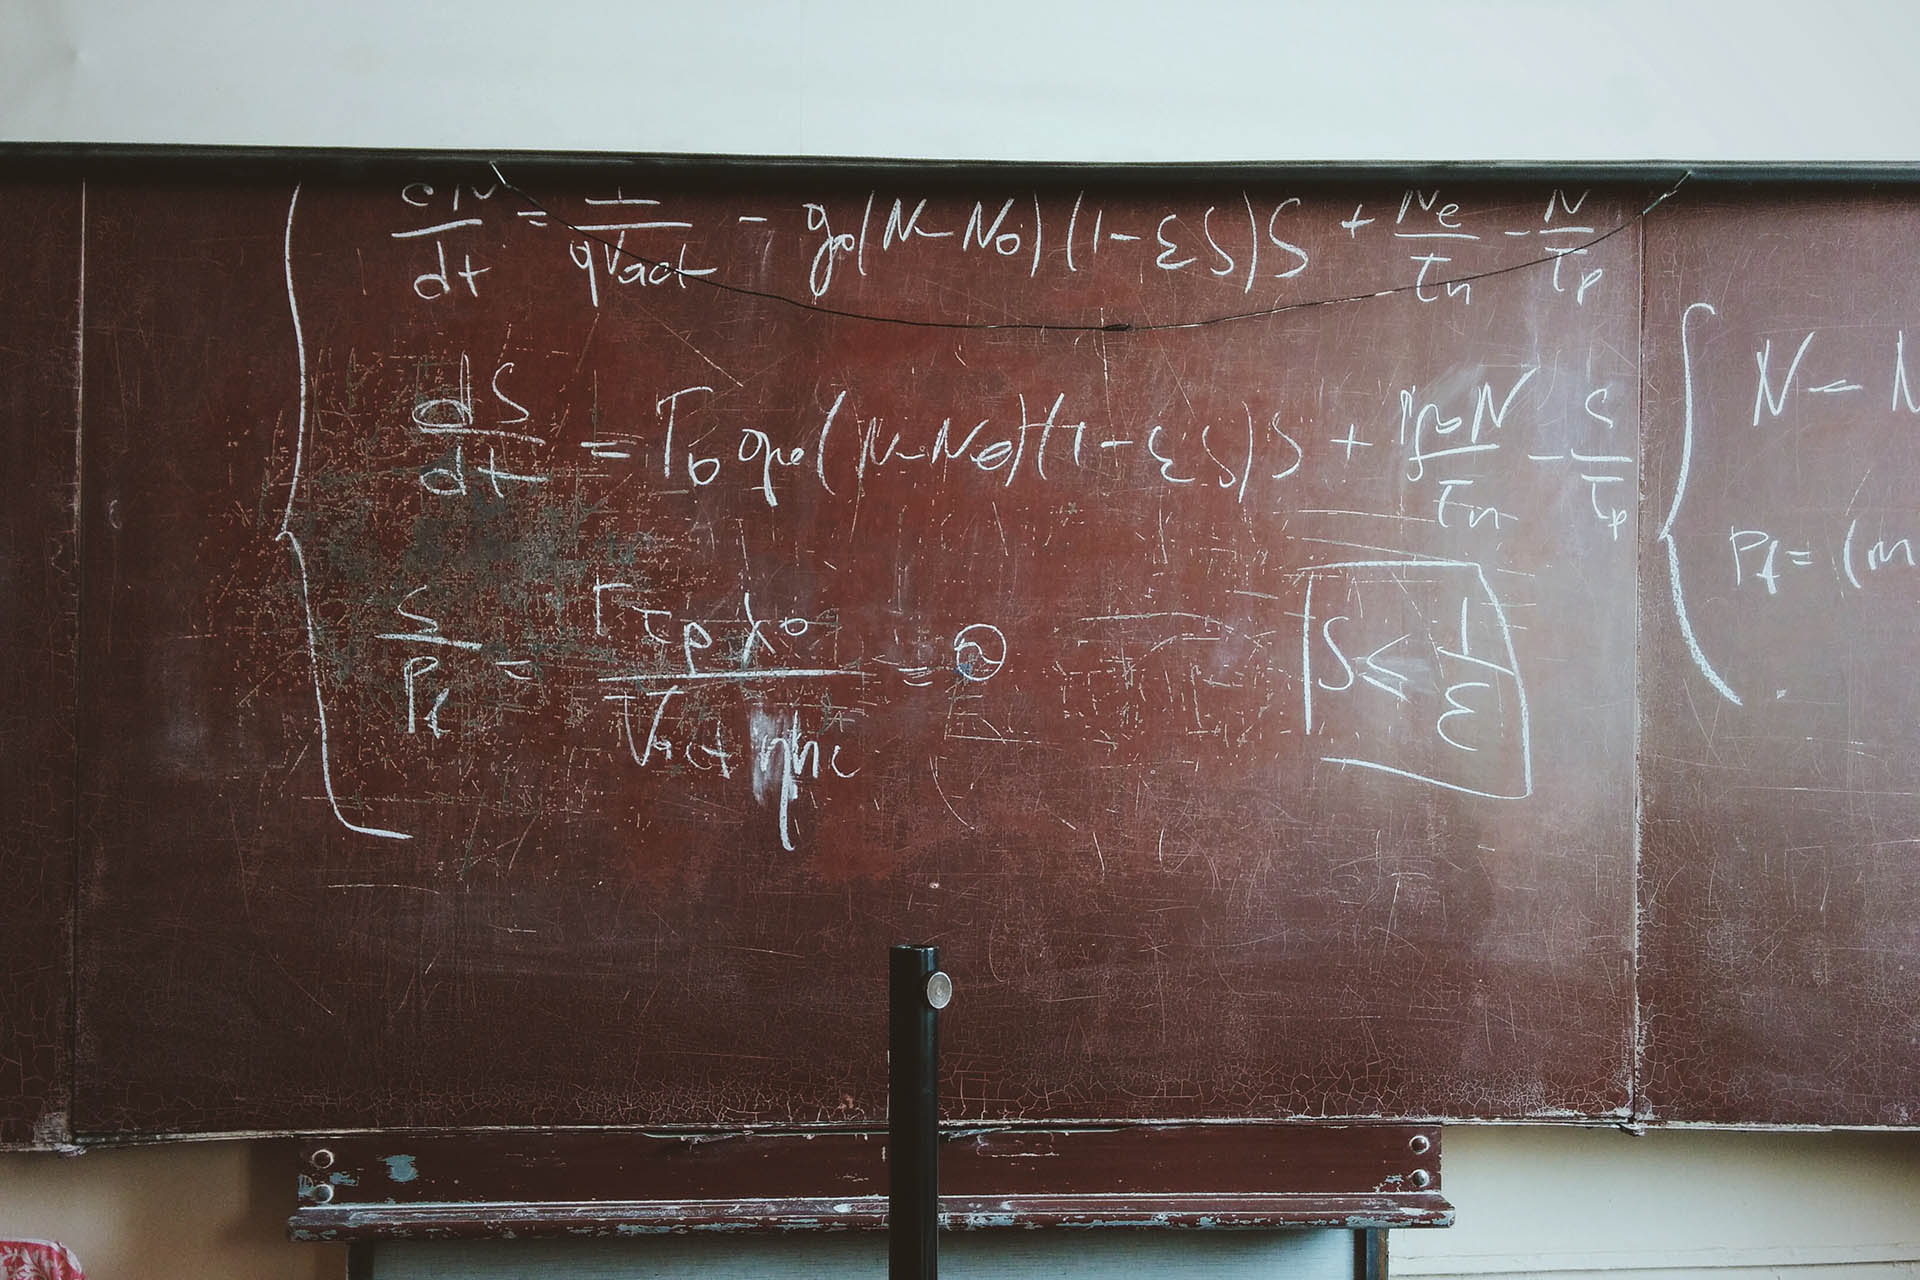 dN/dt = I/qVact - g0(N-N0)(1-εS)S + Ne/τn - N/τp
dS/dt = Γ0 g0(N-N0)(1-εS)S + Γβ0N/τn - S/τp
S/Pf = Γτpλ0/Vactηhc = 
S ≤ 1/ε
N - N
Pf = (m